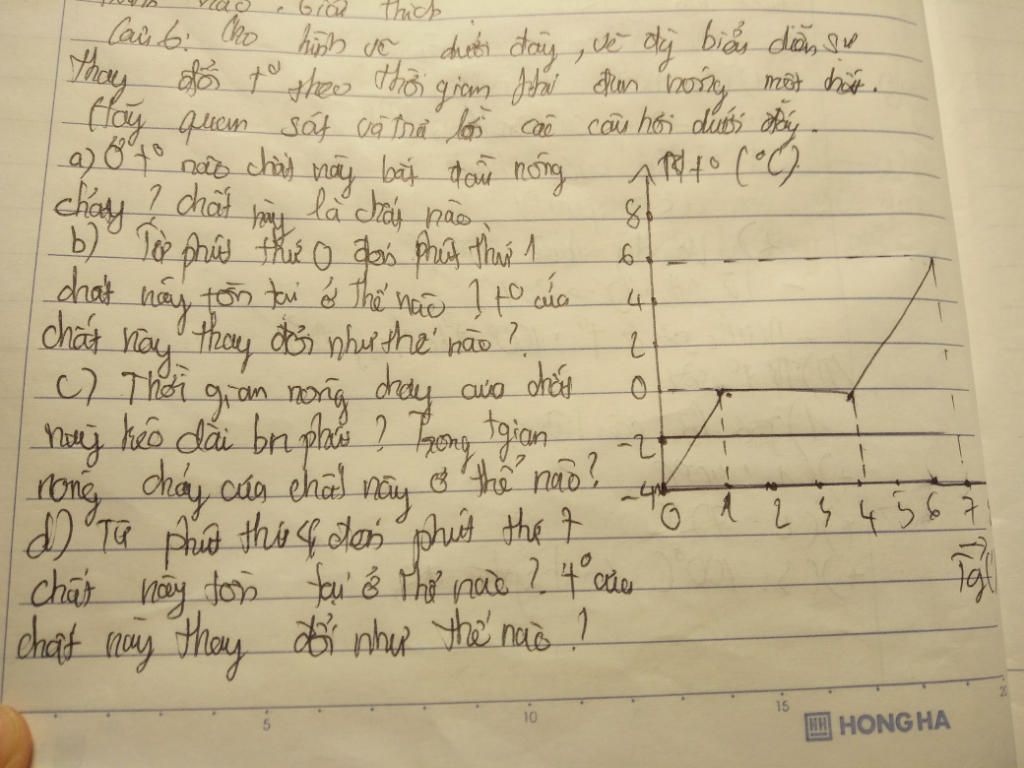 nào. Giải thích.
Câu 6: Cho hình vẽ dưới đây, vẽ đg biểu diễn sự
thay đổi t° theo thời gian khi đun nóng một chất.
Hãy quan sát và trả lời các câu hỏi dưới đấy.
a) Ở t° nào chất này bắt đầu nóng
chảy? chất này là chất nào
b) Từ phút thứ 0 đến phút thứ 1
chất này tồn tại ở thể nào? t° của
chất này thay đổi như thế nào?
c) Thời gian nóng chảy của chất
này kéo dài bn phút? Trong tgian
nóng chảy của chất này ở thể nào?
d) Từ phút thứ 4 đến phút thứ 7
chất này tồn tại ở thể nào? t° của
chất này thay đổi như thế nào?
t° (°C)
8
6
4
2
0
-2
-4
0 1 2 3 4 5 6 7
Tg
5 10 15
HONG HA